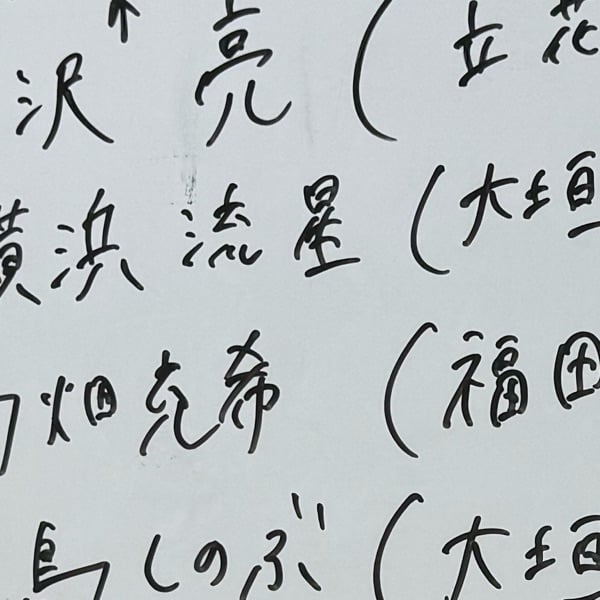 ↑
沢 亮 (立花
横浜 流星 (大垣
畑 充希 (福田
島しのぶ (大垣